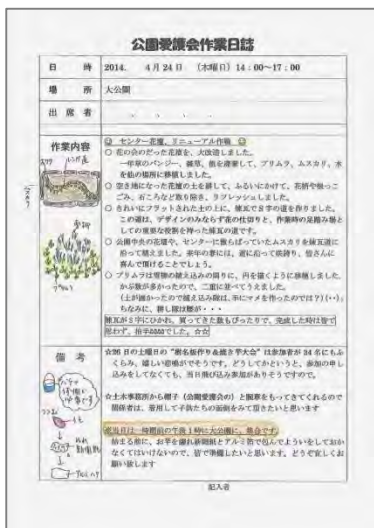 公園愛護会作業日誌
日 時 2014. 4月24日 (木曜日) 14:00～17:00
場 所 大公園
出席者
作業内容
◎ センター花壇、リニューアル作戦 ◎
○ 花の会のだった花壇を、大改造しました。
一年草のパンジー、雑草、他を廃棄して、プリムラ、ムスカリ、水
を他の場所に移植しました。
○ 空き地になった花壇の土を耕して、ふるいにかけて、石柄や根っこ
ごみ、石ころなど取り除き、リフレッシュしました。
○ きれいにフラットされた土の上に、煉瓦でS字の道を作りました。
この道は、デザインのみならず花の仕切りと、作業時の足踏み場と
しての重要な役割を持った煉瓦の道です。
○ 公園中央の花壇や、センターに散らばっていたムスカリを煉瓦道に
沿って植えました。来年の春には、道に沿って咲誇り、皆さんに
喜んで頂けることでしょう。
○ プリムラは雪物の植え込みの周りに、円を描くように移植しました。
かぶ数が多かったので、二重に並べてうえました。
(土が硬かったので植え込み隊は、手にマメを作ったのでは?)(・・;
ちなみに、耕し隊は腰が・・・
煉瓦がS字にひかれ、買ってきた数もぴったりで、完成した時は皆で
思わず、拍手でした。☆☆
備 考
☆26日の土曜日の“樹名板作り&焼き芋大会”は参加者が34名にもふ
くらみ、嬉しい悲鳴がでそうです。どうしてかというと、参加の申し
込みをしてなくても、当日飛び込み参加がありそうですので。
☆土木事務所から帽子(公園愛護会の)と腕章をもってきてくれるので
関係者は、着用して子供たちの面倒をみて頂きたいと思います
※当日は一時間前の午後1時に大公園に、集合です。
始まる前に、お芋を濡れ新聞紙とアルミ箔で包んでよういをしておか
なくてはいけないので、皆で準備したいと思います。どうぞ宜しくお
願い致します
記入者